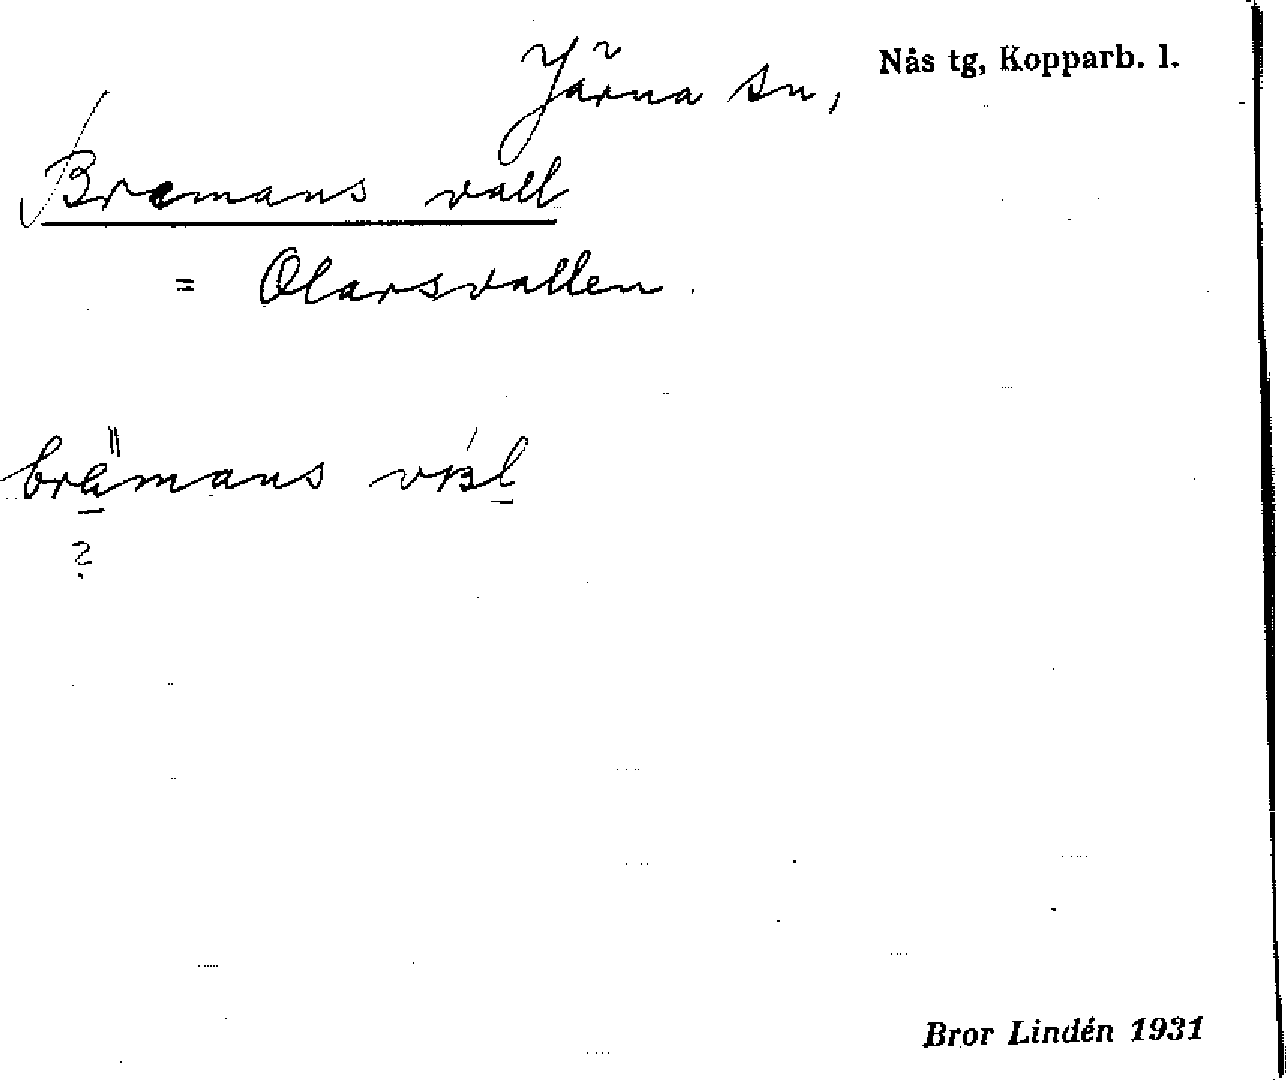 Järna sn, Nås tg, Kopparb. l.
Bremans vall
= Olarsvallen.
brämans
?
Bror Lindén 1931